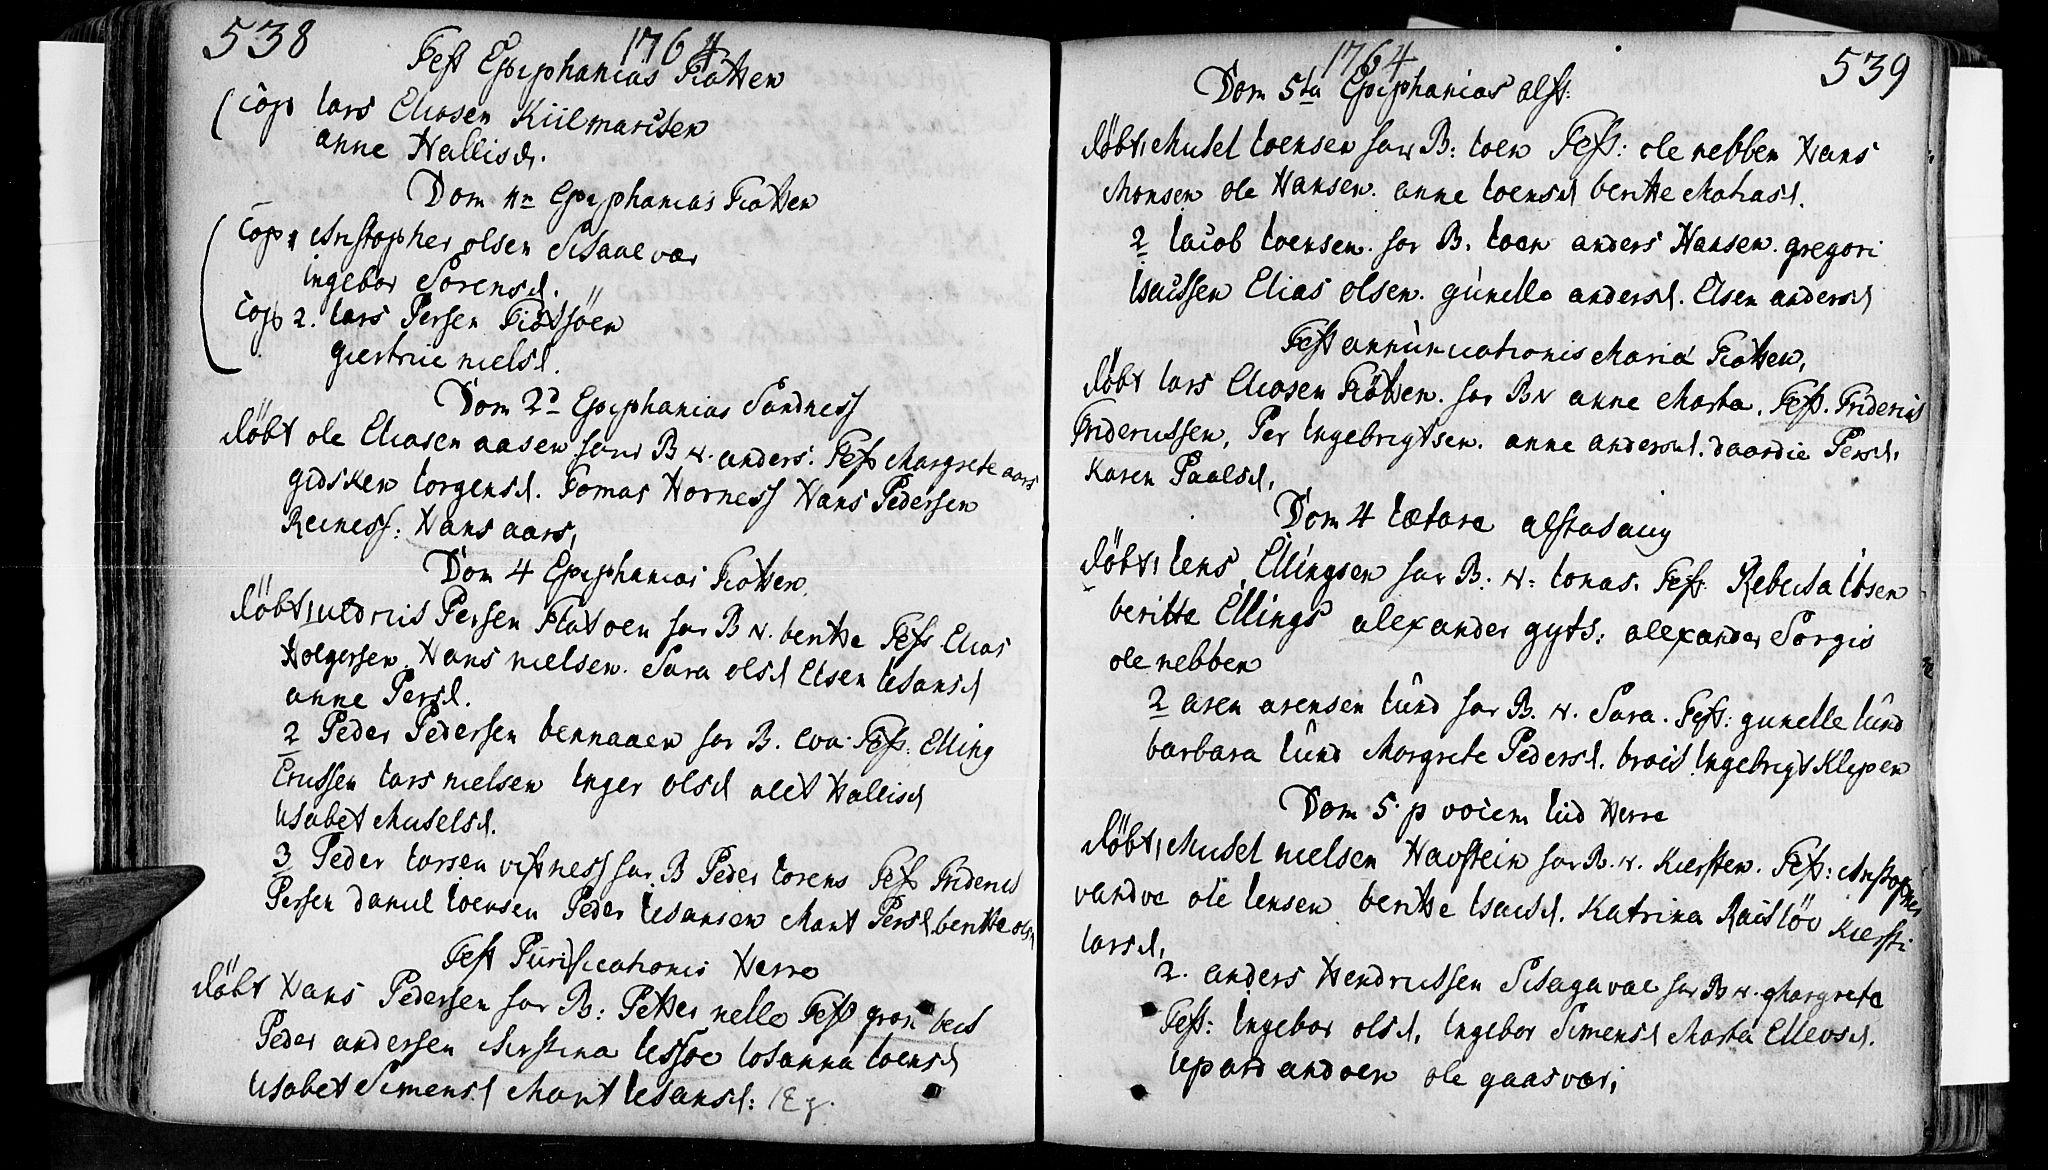 538
1764
Fest Epiphanias Tiøtten
Cop lars Eliasen Kiilmarcken
anne Hallisd.
Dom 4n Epiphanias Tiøtten
Cop 1 Christopher olsen Skaalvær
ingebor Sørensd.
Cop 2. lars Persen Tiøtsöen
giertrue nielsd.
Dom 2d Epiphanias Sandness
döbt ole Eliasen aasen har B N. anders. Test Margrete aars
gidsken torgersd. Tomas Horness Hans Pedersen
Reiness: Hans aars,
Dom 4 Epiphanias Tiøtten.
döbt 1 Persen Flatøen har B N. beritte Test Elias
Holgersen. Hans nielsen. Sara olsd Elsen
anne Persd.
2 Peder Pedersen har B. Eva. Test. Elling
Ericssen lars nielsen Inger olsd alet Hallisd
lisabet Mickelsd.
3 Peder larsen vistness har B Peder lorens Test Friderich
Persen Daniel ioensen Peder iohansen Marit Persd. beritte olsd
Fest Purificationis Herrø
döbt Hans Pedersen har B: Petter nelle Test gron bech
Peder andersen Kirstina iohanna ioensd
lisabet Simensd Marit iohansd:
1764
539
Dom 5ta Epiphanias alst:
döbt 1 Mickel ioensen har B: ioen Test: ole nebben Hans
Monsen ole Hansen. anne ioensd beritte Matiasd.
2 iacob ioensen. har B. ioen anders Hansen. gregori
isacssen Elias olsen. gunelle andersd. Elsen andersd
Fest annunciationis Maria Tiøtten,
döbt lars Eliasen Tiøtten. har B N anne Marta. Test. Friderich
Fridericssen, Per Ingebrigtsen. anne andersd. daardie Persd.
Karen Paalsd,
Dom 4 lætare alstahaug
döbt 1 iens Ellingsen har B. N: ionas. Test. Rebecka ibsen
beritte Ellings alexander gyts: alexander Sorgis
ole nebben
2 aren arensen lund har B. N. Sara. Test: gunelle lund
barbara lund Margrete Pedersd. Ingebrigt Klepen
Dom 5. p Herrø
döbt 1 Mickel nielsen Havstein har B. N. Kiersten. Test: Christopher
vandve ole iensen beritte isacsd. Katrina Raisløv Kiersti
larsd,
2. anders Hendricssen Skagavae har B N. Margrete
Test: Ingebor olsd, Ingebor Simensd Marta Ellevsd.
ole gaasvær,